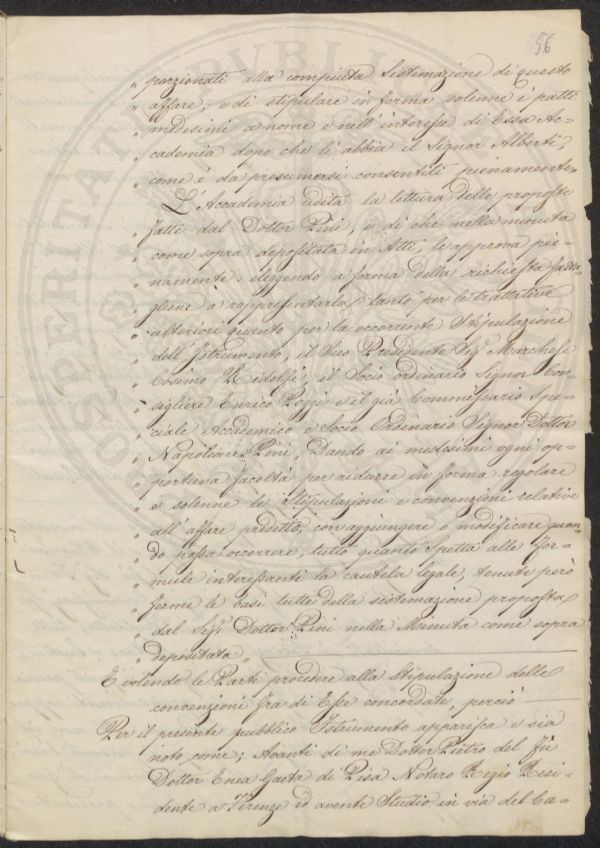 56
„ porzionati alla compiuta Sistemazione di questo
„ affare, e di stipulare in forma solenne i patti
„ medesimi a nome e nell'interesse di Essa Ac=
„ cademia dopo che li abbia il Signor Alberti,
„ come è da presumersi consentiti pienamente„
„ L'Accademia udita la lettura delle proposte
„ fatte dal Dottor Pini, e di che nella minuta
„ come sopra depositata in Atti, le approva pie=
„ namente: eleggendo a forma della richiesta fatta=
„ gliene a rappresentarla tanto per le trattative
„ ulteriori quanto per la occorrente Stipulazione
„ dell'Istrumento, il Suo Presidente Sigr Marchese
„ Cosimo Ridolfi, il Socio ordinario Signor Con=
„ sigliere Enrico Poggi e il già Commissario Spe=
„ ciale Accademico e Socio Ordinario Signor Dottor
„ Napoleone Pini, Dando ai medesimi ogni op=
„ portuna facoltà per ridurre in forma regolare
„ e solenne le Stipulazioni e convenzioni relative
„ all'affare predetto, con aggiungere o modificare quan=
„ do possa occorrere, tutto quanto Spetta alle for=
„ mule interessanti la cautela legale, tenute però
„ ferme le basi tutte della sistemazione proposta
„ dal Sigr Dottor Pini nella Minuta come sopra
„ depositata„
E volendo le Parti procedere alla Stipulazione delle
convenzioni fra di Esse concordate, perciò
Per il presente pubblico Istrumento apparisca e sia
noto come; Avanti di me Dottor Pietro del fù
Dottor Enea Gaeta di Pisa Notaro Regio Resi=
dente a Firenze ed avente Studio in via del Ca=